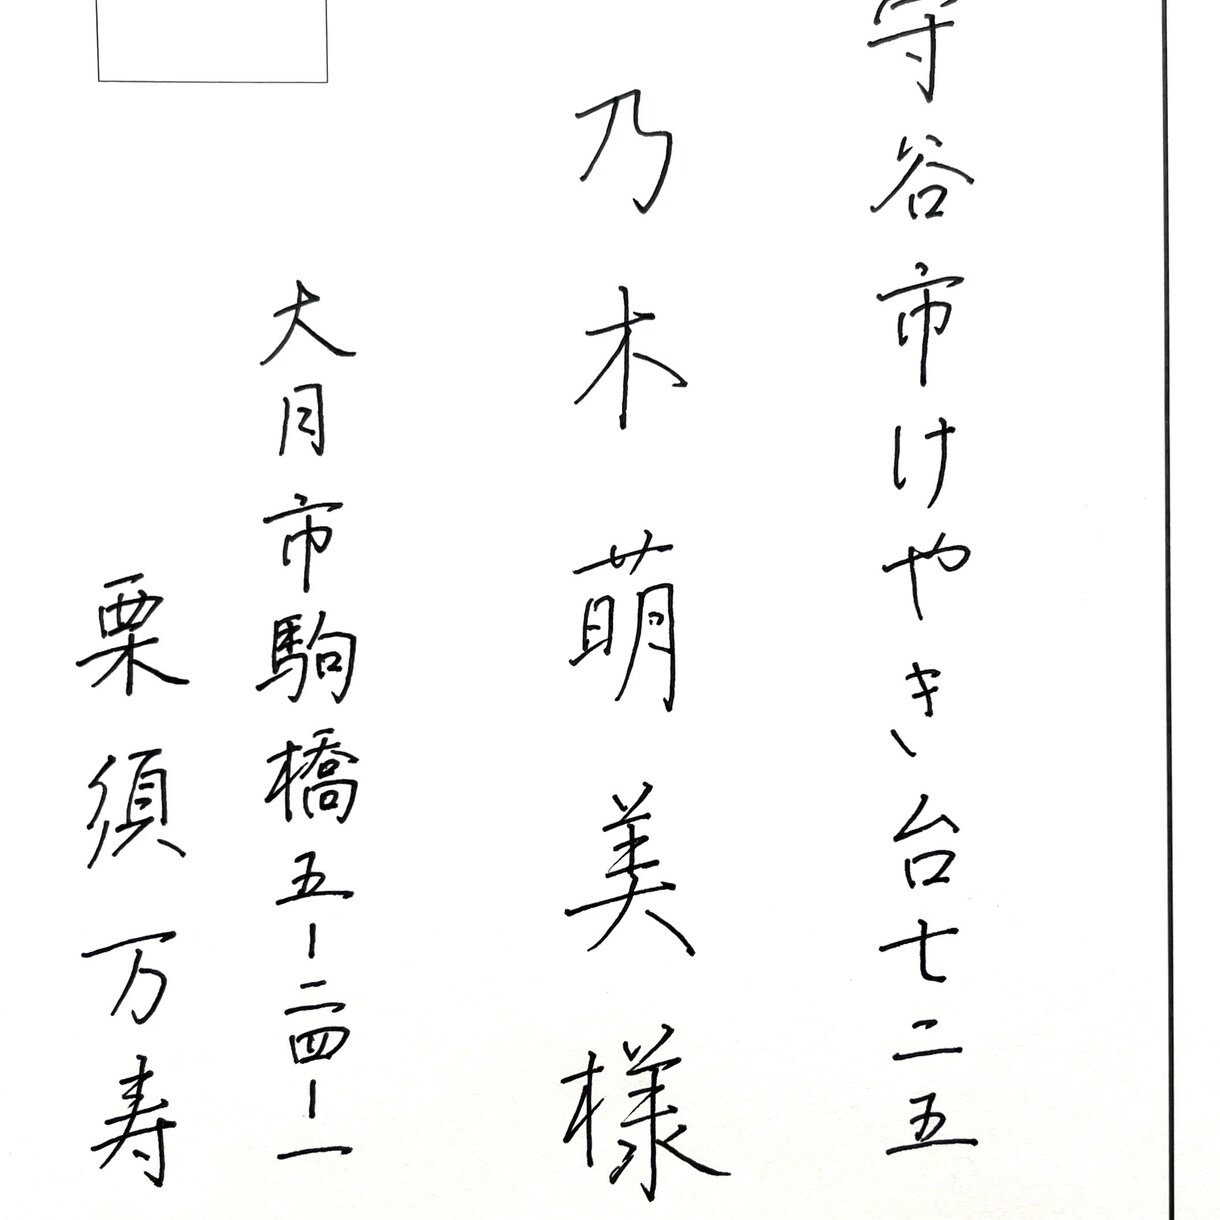 守谷市けやき台七二五
乃木萌美様
大月市駒橋五ー二四ー一
栗須万寿